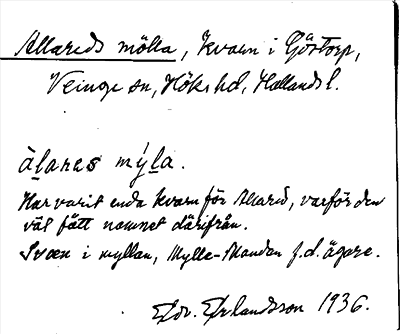 Allareds mölla, kvarn i Göstorp,
Veinge sn, Höks hd, Hallands l.
àlares mýla.
Har varit enda kvarn för Allared, varför den
väl fått namnet därifrån.
i myllan, Mylle- f.d. ägare.
Edv. Erlandsson 1936.